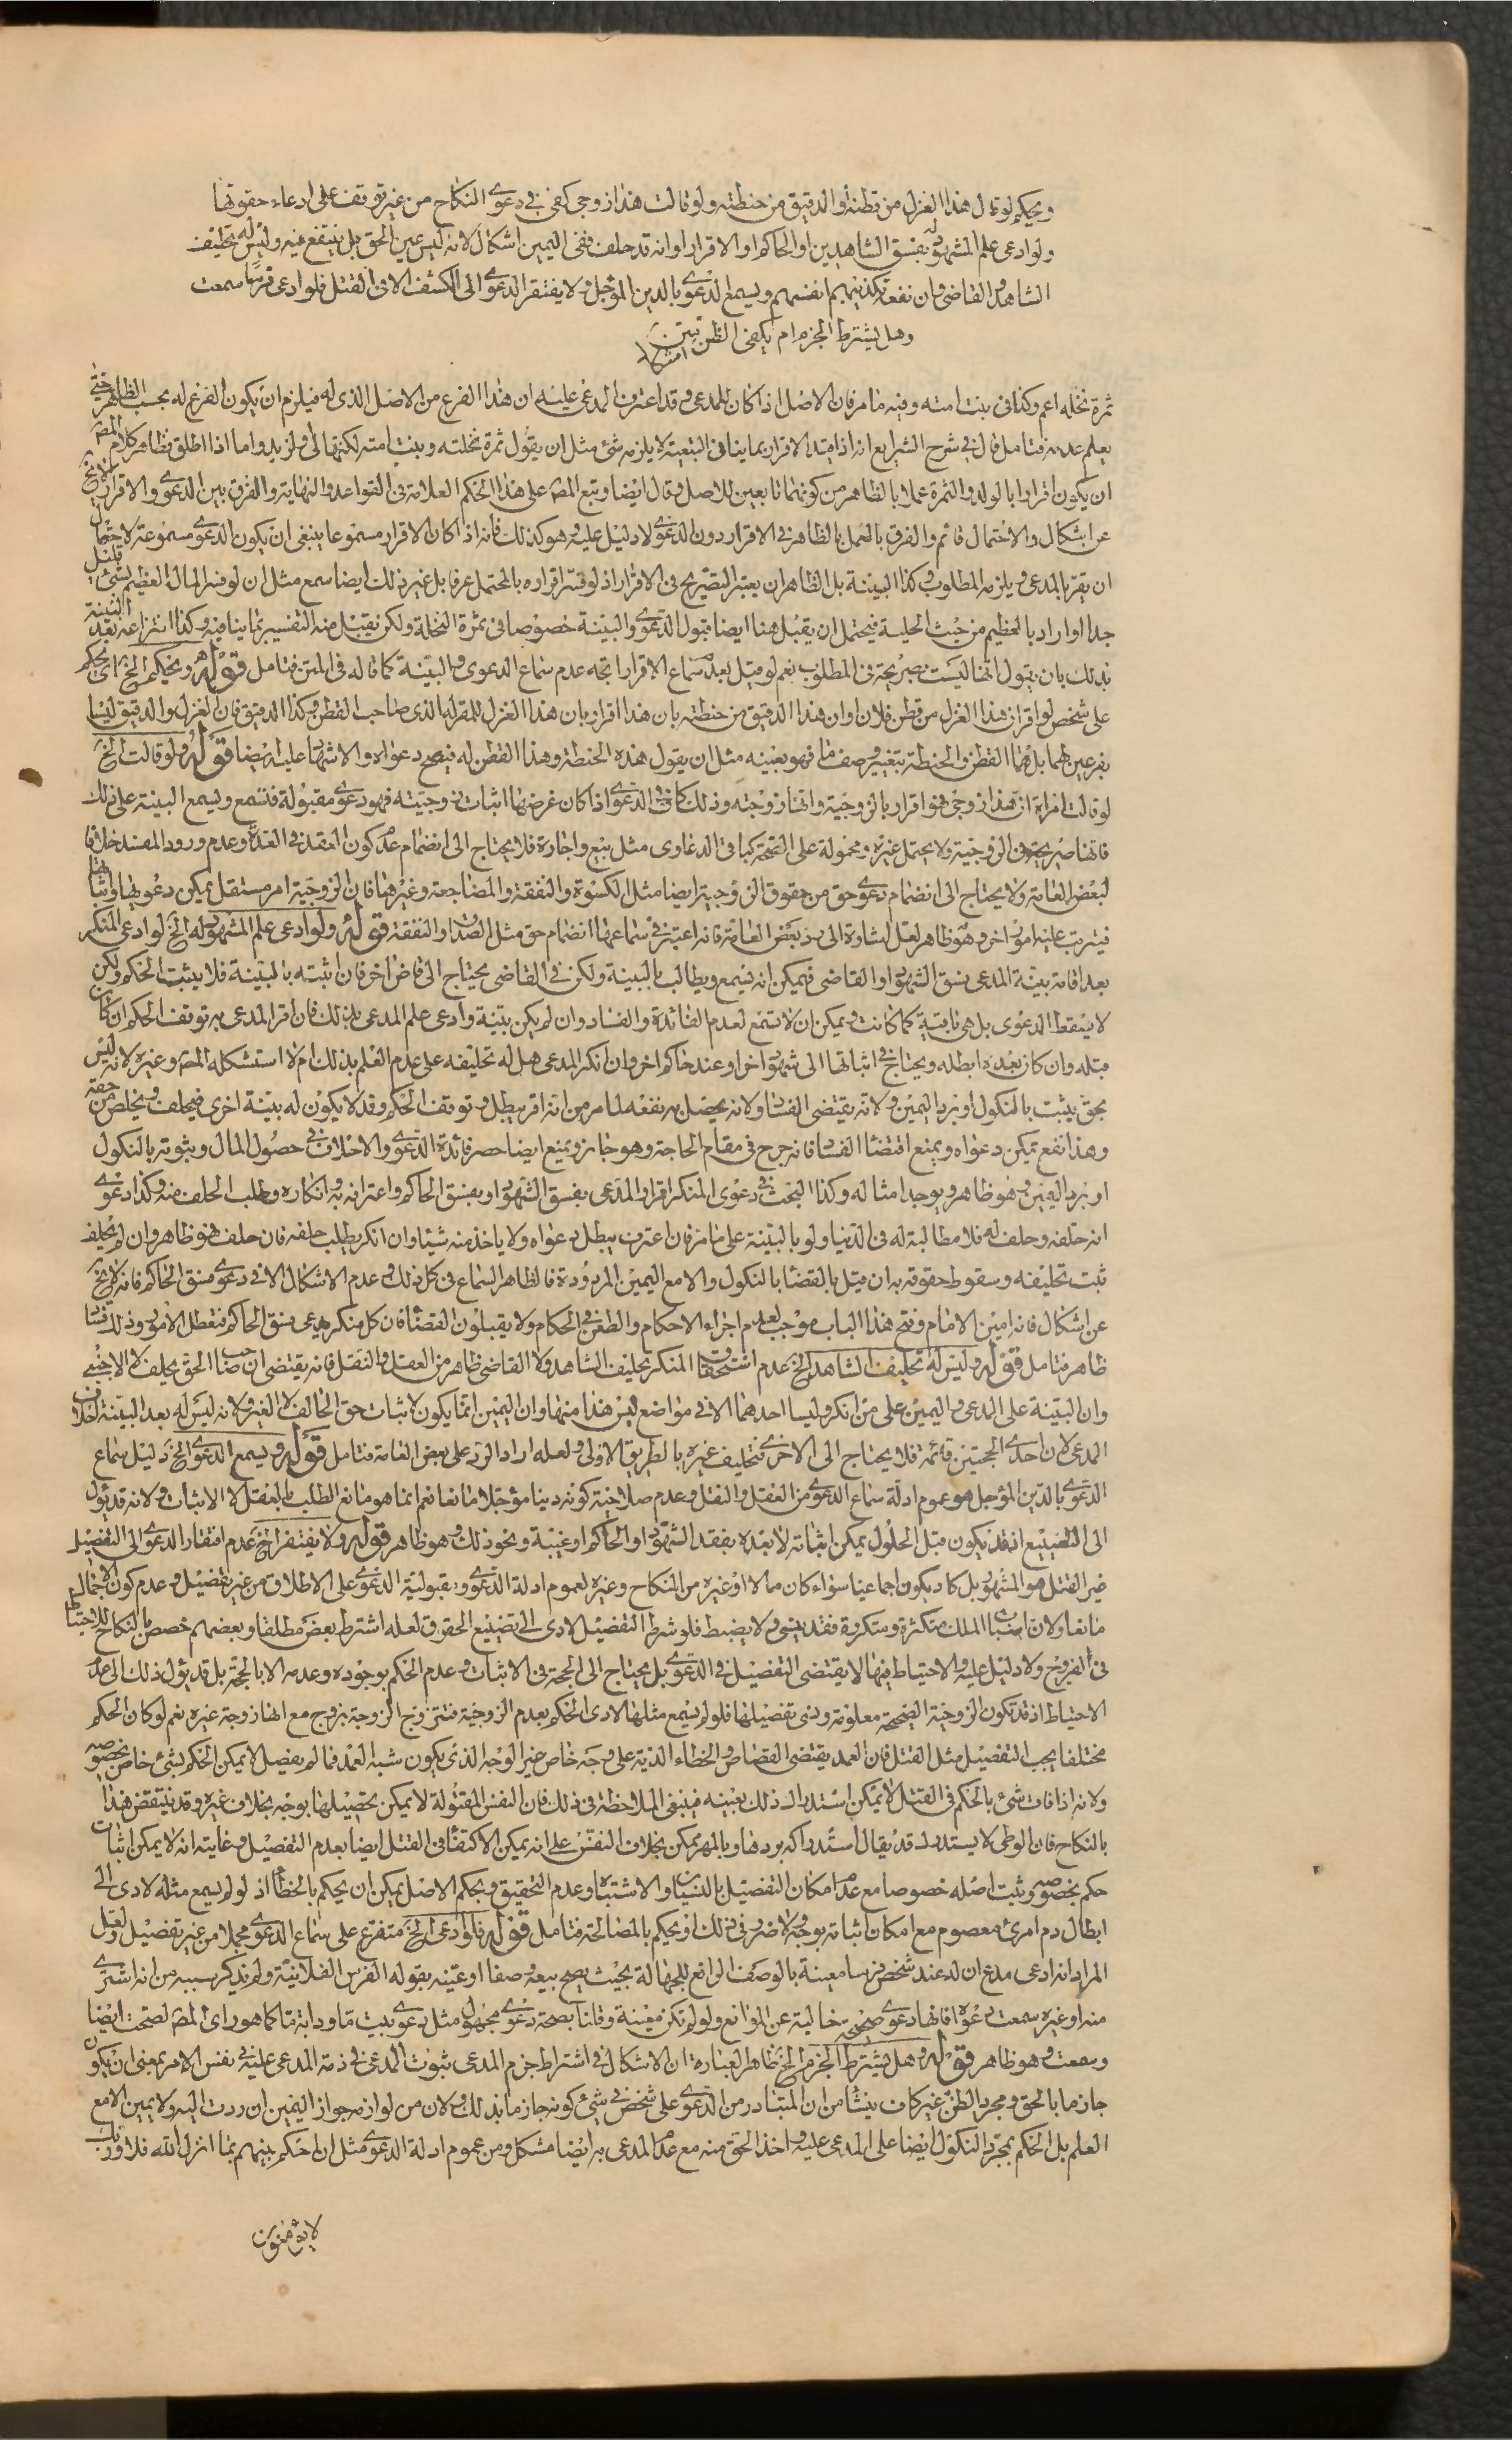 ويحكم لو قال هذا الغزل من قطنه أو الدقيق من حنطته ولو قالت هذا زوجي كفى في دعوى النكاح من غير توقف على ادعاء حقوقها
ولو ادعى علم المشهود له بفسق الشاهدين او الحاكم او الاقرار او انه قد حلف ففى اليمين اشكال لانه ليس عين الحق بل ينتفع فيه وليس له تحليف
الشاهد والقاضى وان نفعه تكذيبهم انفسهم ويسمع الدعوى بالدين المؤجل ولا يفتقر الدعوى الى الكشف الا فى القتل فلو ادعى فرسا سمعت
وهل يشترط الجزم ام يكفى الظن فيه اشكال
ثمرة نخله اعم وكذا فى بنت امته وفيه ما مر فان الاصل اذا كان للمدعى وقد اعترف المدعى عليه ان هذا الفرع من الاصل الذى له فيلزم ان يكون الفرع له بحسب الظاهر حتى
يعلم عدمه فتامل قال فى شرح الشرايع انه اذا قيد الاقرار بما ينافى التبعية لا يلزمه شئ مثل ان يقول ثمرة نخلته وبنت امته لكنها لى ولزيد واما اذا اطلق فظاهر كلام المصر
ان يكون اقرارا بالولد والثمرة عملا بالظاهر من كونهما تابعين للاصل وقال ايضا وتبع المصر على هذا الحكم العلامة فى القواعد والنهاية والفرق بين الدعوى والاقرار لا يخ
عن اشكال والاحتمال قائم والفرق بالعمل بالظاهر فى الاقرار دون الدعوى لا دليل عليه وهو كذلك فانه اذا كان الاقرار مسموعا ينبغى ان يكون الدعوى مسموعة لاحتمال
ان يقر بالمدعى ويلزمه المطلوب وكذا البينة بل الظاهر ان يعتبر التصريح فى الاقرار اذ لو فسر اقراره بالمحتمل عرفا بل غير ذلك ايضا سمع مثل ان لو فسر المال العظيم بشئ قليل
جدا او اراد بالعظيم من حيث الحلية فيحتمل ان يقبل هنا ايضا قبول الدعوى والبينة خصوصا فى ثمرة النخلة ولكن يقبل منه التفسير بما ينافيه وكذا انتزاعه بعد البينة
بذلك بان يقول انها ليست بصريحة فى المطلوب نعم لو قيل بعدم سماع الاقرار اتجه عدم سماع الدعوى والبينة كما قاله فى المتن فتامل قوله ويحكم الخ اى يحكم
على شخص لو اقر ان هذا الغزل من قطن فلان او ان هذا الدقيق من حنطته بان هذا اقرار بان هذا الغزل للمقر له الذى صاحب القطن وكذا الدقيق فان الغزل والدقيق ليسا
بفرعين لهما بل هما القطن والحنطة بتغيير وصف ما فهو بعينه مثل ان يقول هذه الحنطة وهذا القطن له فيصح دعواه والاشهاد عليه ايضا قوله ولو قالت الخ
لو قالت امراة ان هذا زوجى فهو اقرار بالزوجية وانها زوجته وذلك كاف فى الدعوى اذا كان غرضها اثبات زوجيته فهو دعوى مقبولة فتسمع ويسمع البينة على ذلك
فانها صريحة فى الزوجية ولا يحتمل غيره ومحمولة على الصحة كباقى الدعاوى مثل بيع واجارة فلا يحتاج الى انضمام عدم كون العقد فى العدة وعدم ورود المفسد خلافا
لبعض العامة ولا يحتاج الى انضمام دعوى حق من حقوق الزوجية ايضا مثل الكسوة والنفقة والمضاجعة وغيرها فان الزوجية امر مستقل يمكن دعويها واثباتها
فيترتب عليه امور اخر وهو ظاهر لعل اشارة الى رد بعض العامة فانه اعتبر فى سماعها انضمام حق مثل الصداق او النفقة قوله ولو ادعى علم المشهود له الخ لو ادعى المنكر
بعد اقامة بينة المدعى فسق الشهود او القاضى فيمكن انه يسمع ويطالب بالبينة ولكن فى القاضى يحتاج الى قاض اخر فان اثبته بالبينة فلا يثبت الحكم ولكن
لا يسقط الدعوى بل هى باقية كما كانت ويمكن ان لا تسمع لعدم الفائدة والفساد وان لم يكن بينة وادعى علم المدعى بذلك فان اقر المدعى به توقف الحكم ان كان
قبله وان كان بعده ابطله ويحتاج فى اثباتها الى شهود اخر او عند حاكم اخر وان انكر المدعى هل له تحليفه على عدم العلم بذلك ام لا استشكله المصر وغيره لانه ليس
بحق يثبت بالنكول او برد اليمين ولانه يقتضى الفساد ولانه يحصل به نفعه لما مر من انه اقر بيطل وتوقف الحكم وقد لا يكون له بينة اخرى فيحلف ويخلص من حقه
وهذا نفع يمكن دعواه ويمنع اقتضاء الفساد فانه جرح فى مقام الحاجة وهو جائز ويمنع ايضا حصر فائدة الدعوى والاحلاف فى حصول المال وثبوته بالنكول
او برد اليمين وهو ظاهر ويوجد امثاله وكذا البحث فى دعوى المنكر اقرار المدعى بفسق الشهود او بفسق الحاكم واعترافه به وانكاره وطلب الحلف منه وكذا دعوى
انه حلفه وحلف له فلا مطالبة له فى الدنيا ولو بالبينة على ما مر فان اعترف يبطل دعواه ولا ياخذ منه شيئا وان انكر يطلب حلفه فان حلف فهو ظاهر وان لم يحلف
ثبت تحليفه وسقوط حقوقه به ان قيل بالقضاء بالنكول والا مع اليمين المردودة فالظاهر السماع فى كل ذلك وعدم الاشكال الا فى دعوى فسق الحاكم فانه لا يخ
عن اشكال فانه امين الامام وفتح هذا الباب موجب لعدم اجراء الاحكام والطعن فى الحكام ولا يقبلون القضاء فان كل منكر يدعى فسق الحاكم فتعطل الامور وذلك فساد
ظاهر فتامل قوله وليس له تحليف الشاهد الخ عدم استحقاق المنكر تحليف الشاهد ولا القاضى ظاهر من العقل والنقل فانه يقتضى ان صاحب الحق يحلف لا الاجنبى
وان البينة على المدعى واليمين على من انكر وليسا احدهما الا فى مواضع ليس هذا منها وان اليمين انما يكون لاثبات حق الحالف لا الغير ولانه ليس له بعد البينة احلاف
المدعى لان احدى الحجتين قائمة فلا يحتاج الى الاخرى فتحليف غيره بالطريق الاولى ولعله اراد الرد على بعض العامة فتامل قوله ويسمع الدعوى الخ دليل سماع
الدعوى بالدين المؤجل هو عموم ادلة سماع الدعوى من العقل والنقل وعدم صلاحية كونه دينا مؤجلا مانعا نعم انما هو مانع الطلب بالعقل لا الاثبات ولانه قد يؤل
الى التضييع اذ قد يكون قبل الحلول يمكن اثباته لا بعده بفقد الشهود او الحاكم او غيبة ونحو ذلك وهو ظاهر قوله ولا يفتقر الخ عدم افتقار الدعوى الى التفصيل
غير القتل هو المشهور بل كاد يكون اجماعيا سواء كان مالا او غيره من النكاح وغيره لعموم ادلة الدعوى وبقبولية الدعوى على الاطلاق من غير تفصيل وعدم كون الاجمال
مانعا ولان اسباب الملك متكثرة ومتكررة فقد ينسى ولا يضبط فلو شرط التفصيل لادى الى تضييع الحقوق لعله اشترط بعض مطلقا وبعضهم خصص بالنكاح للاحتياط
فى الفروج ولا دليل عليه والاحتياط فيها لا يقتضى التفصيل فى الدعوى بل يحتاج الى الحجة فى الاثبات وعدم الحكم بوجوده وعدمه الا بالحجة بل قد يؤل ذلك الى عدم
الاحتياط اذ قد تكون الزوجية الصحيحة معلومة ونسى تفصيلها فلو لم يسمع مثلها لادى الحكم بعدم الزوجية فتتزوج الزوجة بزوج مع انها زوجة غيره نعم لو كان الحكم
مختلفا يجب التفصيل مثل القتل فان العمد يقتضى القصاص والخطاء الدية على وجه خاص غير الوجه الذى يكون شبه العمد فما لم يفصل لا يمكن الحكم بشئ خاص بخصوصه
ولانه اذا فات شئ بالحكم فى القتل لا يمكن استدراك ذلك بعينه فينبغى الملاحظة فى ذلك فان النفس المقتولة لا يمكن تحصيلها بوجه بخلاف غيره وقد ينتقض هذا
بالنكاح فان الوطى لا يستدرك قد يقال استدراكه بردها وبالمهر ممكن بخلاف النفس على انه يمكن الاكتفاء فى القتل ايضا بعدم التفصيل وغايته انه لا يمكن اثبات
حكم بخصوصه وثبت اصله خصوصا مع عدم امكان التفصيل بالنسيان والاشتباه وعدم التحقيق وبحكم الاصل يمكن ان يحكم بالخطاء اذ لو لم يسمع مثله لادى الى
ابطال دم امرئ معصوم مع امكان اثباته بوجه لا ضرر فى ذلك او يحكم بالمصالحة فتامل قوله فلو ادعى الخ متفرع على سماع الدعوى مجملا من غير تفصيل ولعل
المراد انه ادعى مدع ان له عند شخص فرسا معينة بالوصف الرافع للجهالة بحيث يصح بيعه وصفا او عينه بقوله الفرس الفلانية ولم يذكر سببه من انه اشترى
منه او غيره سمعت دعواه فانها دعوى صحيحة خالية عن الموانع ولو لم تكن معينة وقلنا بصحة دعوى مجهول مثل دعوى بيت ما ودابة ما كما هو راى المصر لصحت ايضا
وسمعت وهو ظاهر قوله وهل يشترط الجزم الخ ظاهر العبارة ان الاشكال فى اشتراط جزم المدعى بثبوت المدعى فى ذمة المدعى عليه فى نفس الامر بمعنى ان يكون
جازما بالحق ومجرد الظن غير كاف ينشا من ان المتبادر من الدعوى على شخص فى شئ كونه جازما بذلك ولان من لوازمه جواز اليمين ان ردت اليه ولا يمين الا مع
العلم بل الحكم بمجرد النكول ايضا على المدعى عليه واخذ الحق منه مع عدم المدعى به ايضا مشكل ومن عموم ادلة الدعوى مثل ان احكم بينهم بما انزل الله فلا وربك
لا يؤمنون